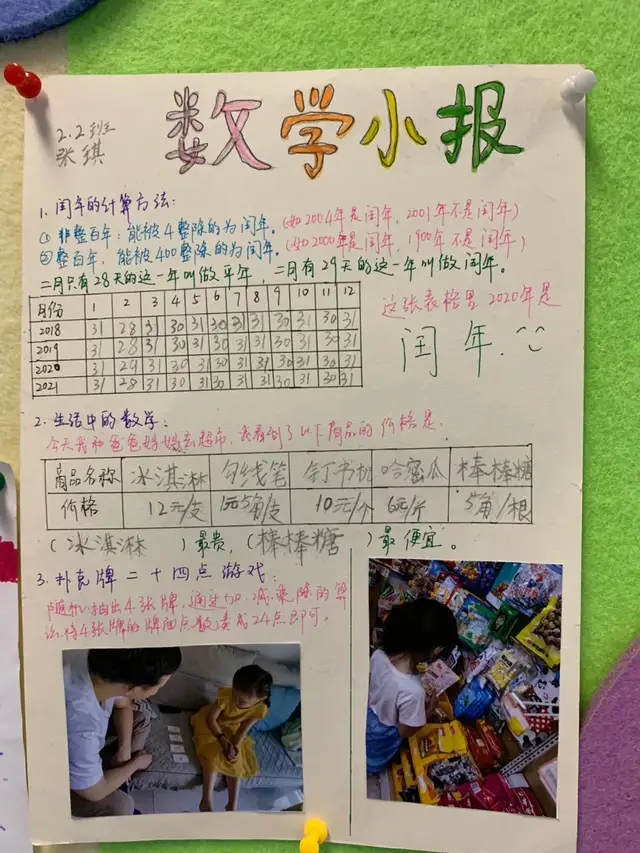 数学小报
2.2班
张琪
1. 闰年的计算方法:
① 非整百年: 能被4整除的为闰年。(如2004年是闰年, 2001年不是闰年)
② 整百年, 能被400整除的为闰年。(如2000年是闰年, 1900年不是闰年)
二月只有28天的这一年叫做平年, 二月有29天的这一年叫做闰年。
月份 1 2 3 4 5 6 7 8 9 10 11 12
2018 31 28 31 30 31 30 31 31 30 31 30 31
2019 31 28 31 30 31 30 31 31 30 31 30 31
2020 31 29 31 30 31 30 31 31 30 31 30 31
2021 31 28 31 30 31 30 31 31 30 31 30 31
这张表格里 2020年是
闰年.
2. 生活中的数学:
今天我和爸爸妈妈去超市, 我看到了以下商品的价格是.
商品名称 冰淇淋 勾线笔 订书机 哈密瓜 棒棒糖
价格 12元/支 1元5角/支 10元/个 6元/斤 5角/根
(冰淇淋)最贵, (棒棒糖)最便宜。
3. 扑克牌二十四点游戏:
随机抽出4张牌, 通过加、减、乘、除的算
法将4张牌的牌面点数凑成24点即可。